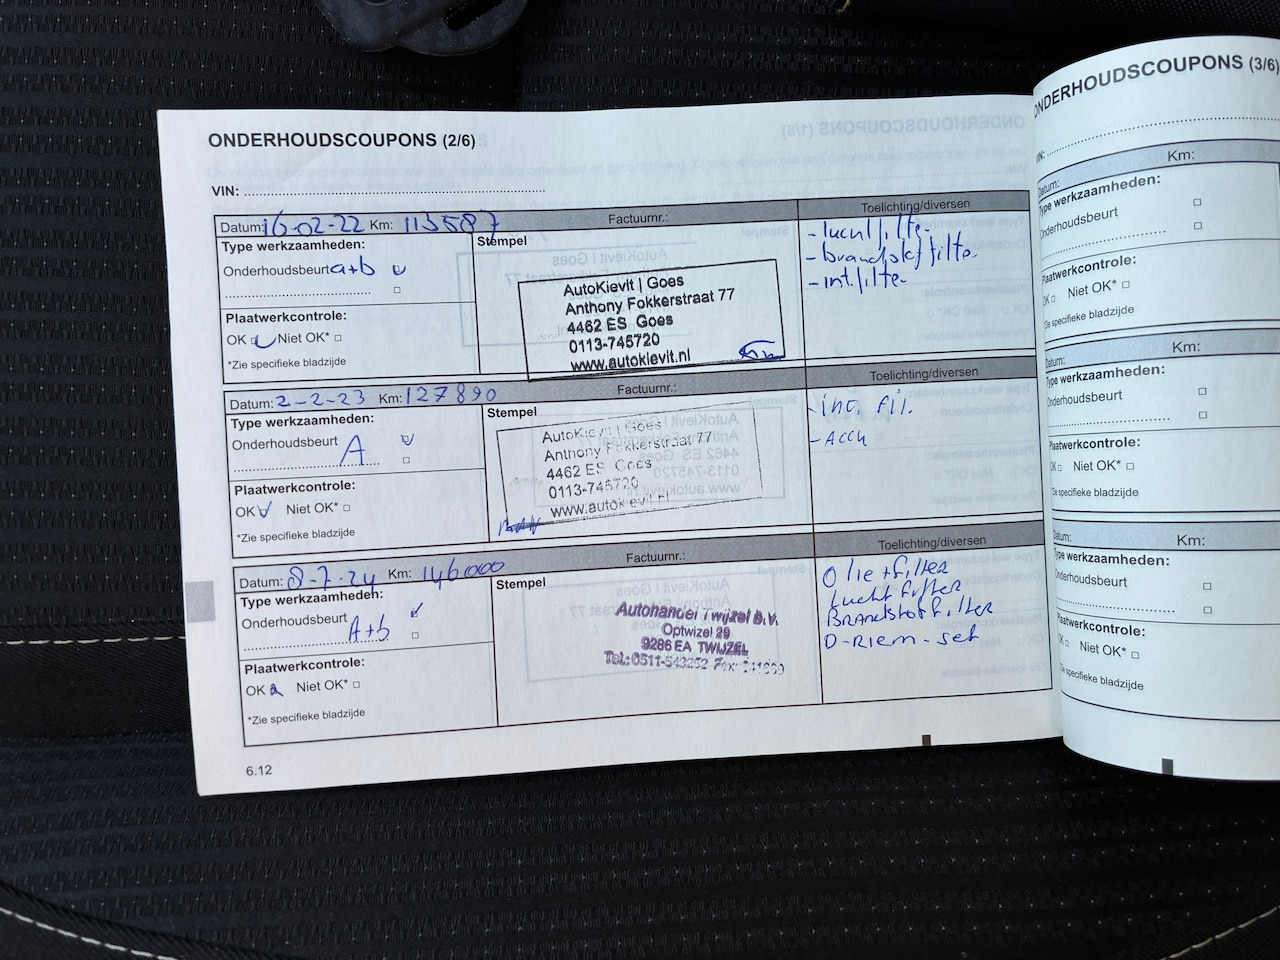 ONDERHOUDSCOUPONS (2/6)
VIN:
Datum: 16-02-22 Km: 113587 Factuurnr.: Toelichting/diversen
Type werkzaamheden:
Onderhoudsbeurt a+b
Plaatwerkcontrole:
OK Niet OK*
*Zie specifieke bladzijde
Stempel
AutoKievit | Goes
Anthony Fokkerstraat 77
4462 ES Goes
0113-745720
www.autokievit.nl
- luchtfilter
- brandstoffilter
- int.filter
Datum: 2-2-23 Km: 127890 Factuurnr.: Toelichting/diversen
Type werkzaamheden:
Onderhoudsbeurt
A
Plaatwerkcontrole:
OK Niet OK*
*Zie specifieke bladzijde
Stempel
AutoKievit | Goes
Anthony Fokkerstraat 77
4462 ES Goes
0113-745720
www.autokievit.nl
- int. fil.
- Accu
Datum: 8-7-24 Km: 146000 Factuurnr.: Toelichting/diversen
Type werkzaamheden:
Onderhoudsbeurt
A+b
Plaatwerkcontrole:
OK Niet OK*
*Zie specifieke bladzijde
Stempel
Autohandel Twijzel B.V.
Optwizel 29
9286 EA TWIJZEL
Tel.: 0511-543252 Fax:
Olie+filter
Lucht filter
Brandstof filter
D-Riem-set
6.12
ONDERHOUDSCOUPONS (3/6)
Datum: Km:
Type werkzaamheden:
Onderhoudsbeurt
Plaatwerkcontrole:
OK Niet OK*
Zie specifieke bladzijde
Datum: Km:
Type werkzaamheden:
Onderhoudsbeurt
Plaatwerkcontrole:
OK Niet OK*
Zie specifieke bladzijde
Datum: Km:
Type werkzaamheden:
Onderhoudsbeurt
Plaatwerkcontrole:
OK Niet OK*
Zie specifieke bladzijde